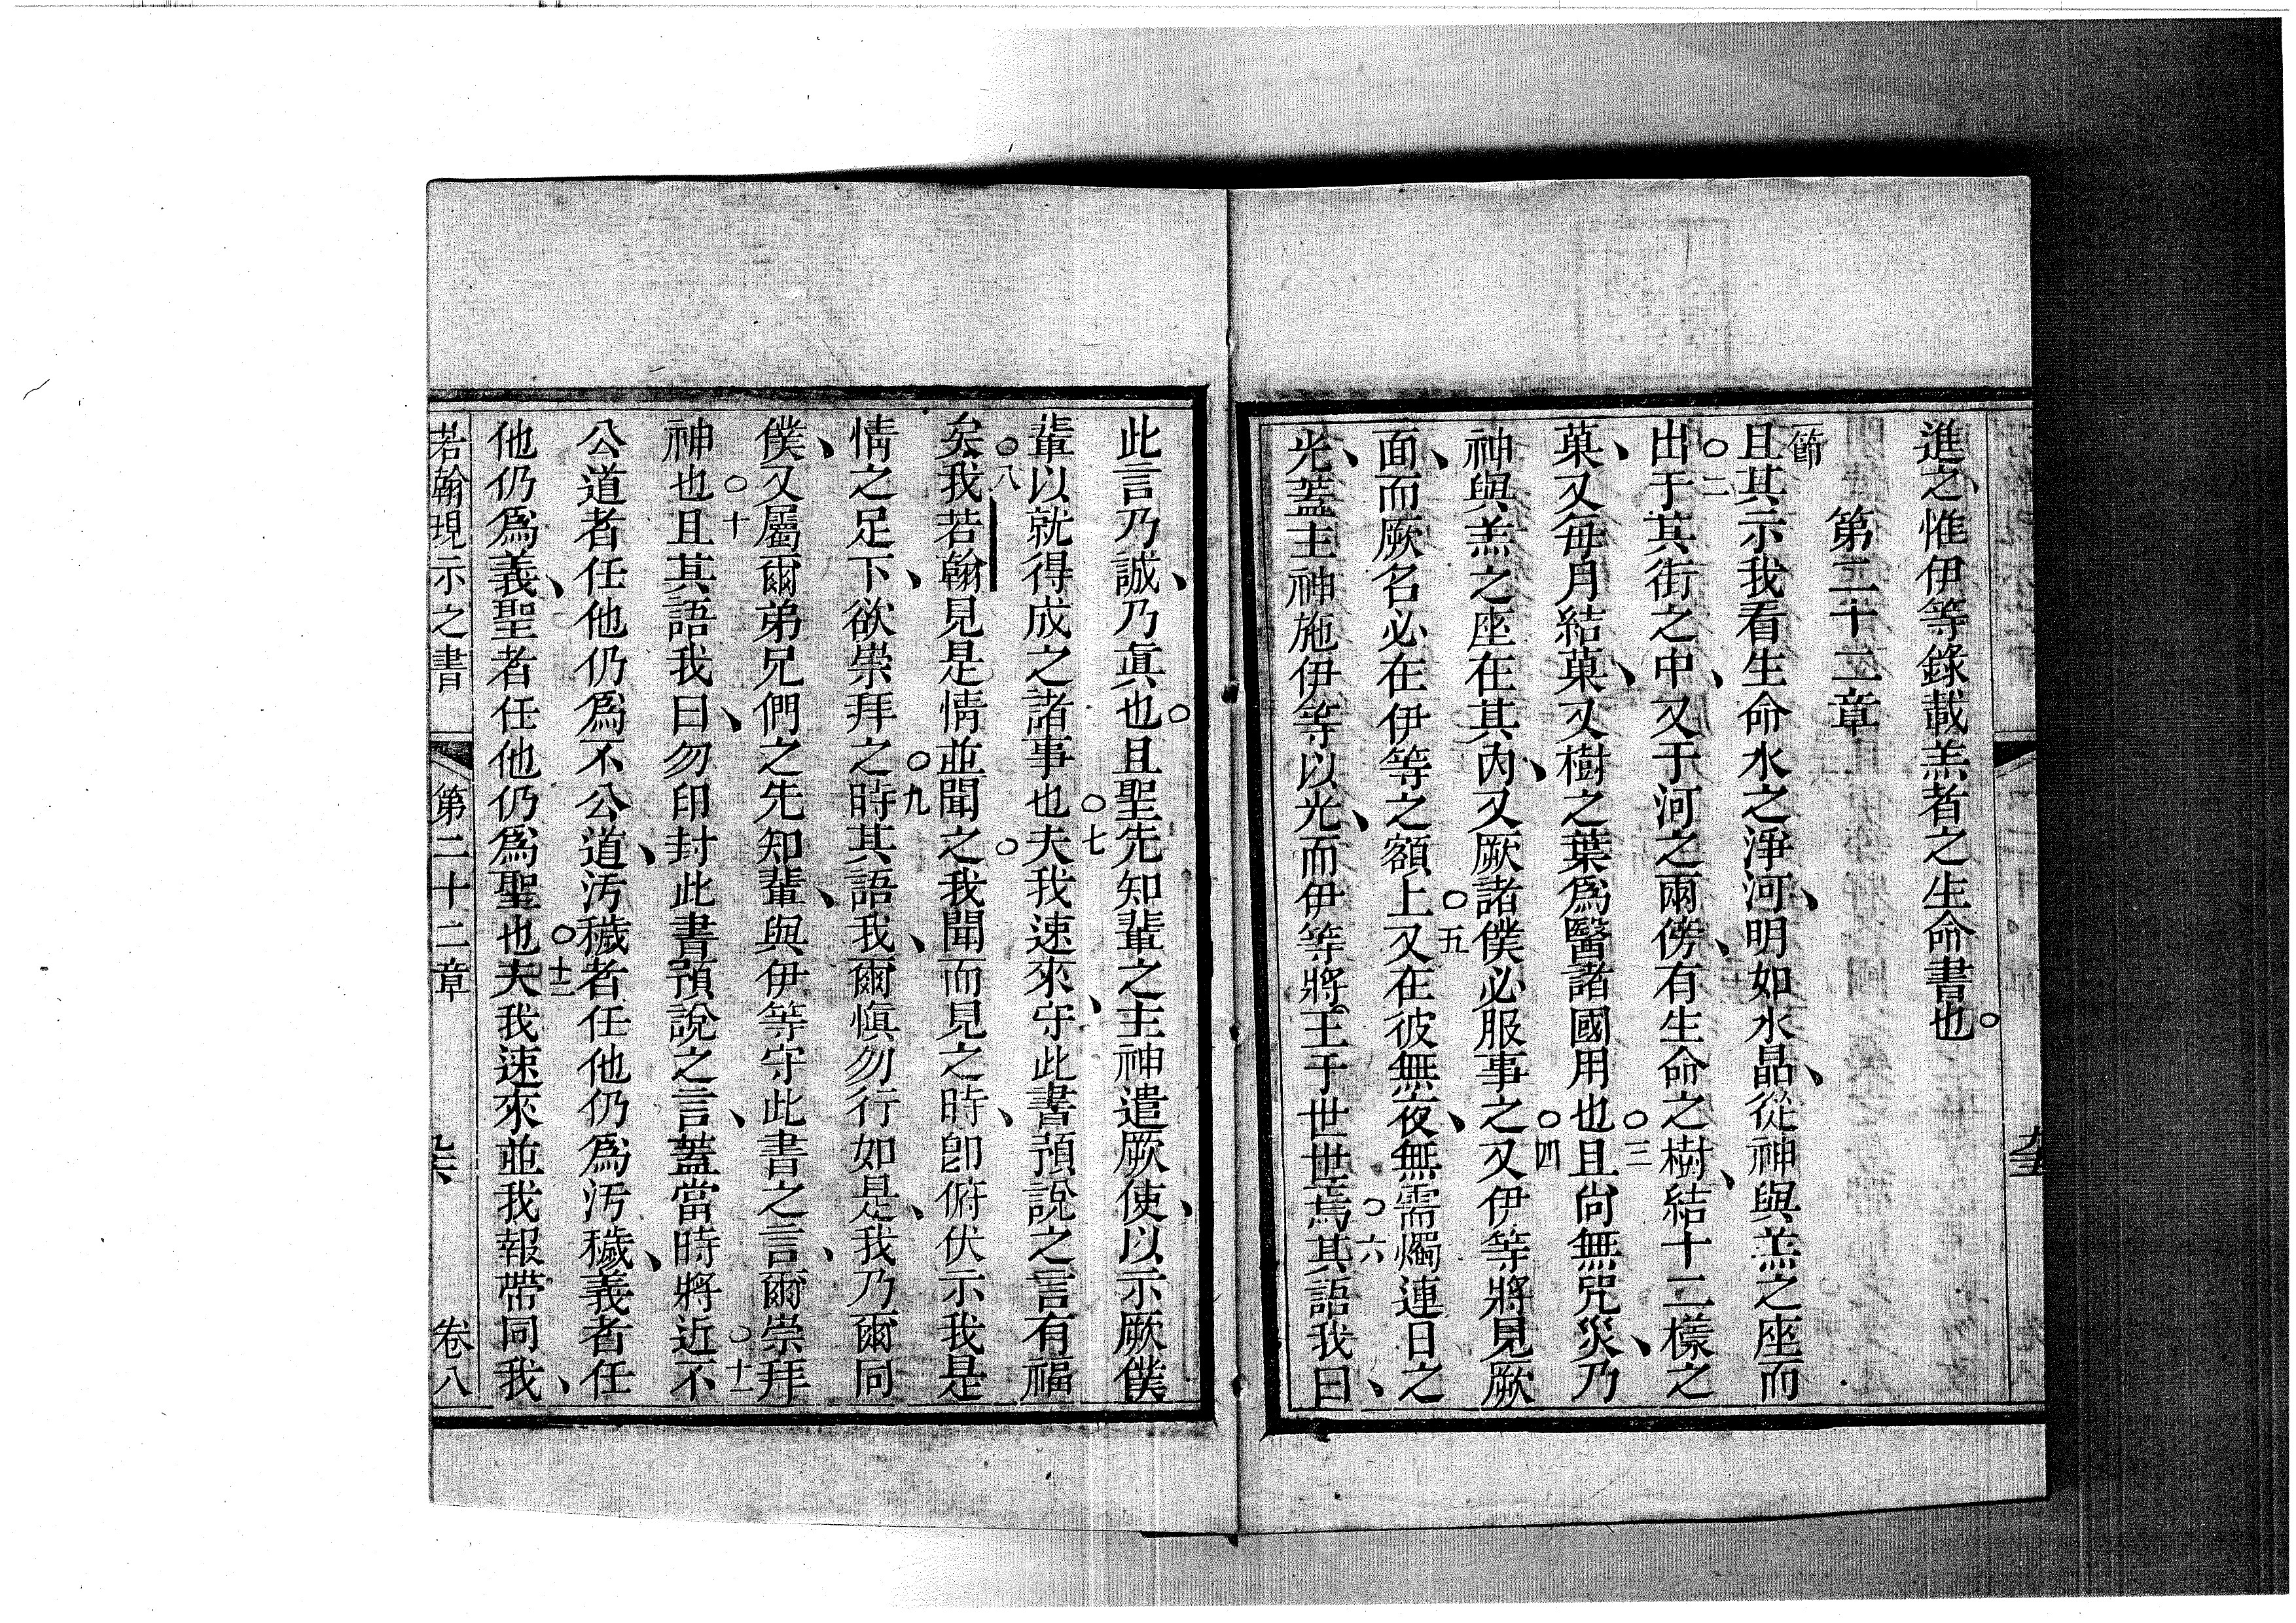 進之、惟伊等錄載羔者之生命書也。
第二十二章
一節且其示我看生命水之淨河、明如水晶、從神與羔之座而
出○二于其街之中、又于河之兩傍、有生命之樹、結十二樣之
菓、又每月結菓、又樹之葉爲醫諸國用也○三且尚無咒災、乃
神與羔之座在其內、又厥諸僕必服事之○四又伊等將見厥
面、而厥名必在伊等之額上○五又在彼無夜、無需燭連日之
光、蓋主神施伊等以光、而伊等將王于世世焉○六其語我曰、
此言乃誠、乃眞也。且聖先知輩之主神遣厥使、以示厥僕
輩以就得成之諸事也○七夫我速來、守此書預說之言有福
矣○八我若翰見是情並聞之。我聞而見之時、卽俯伏示我是
情之足下、欲崇拜之○九時其語我、爾愼勿行如是、我乃爾同
僕、又屬爾弟兄們之先知輩、與伊等守此書之言、爾崇拜
神也○十且其語我曰、勿印封此書預說之言、蓋當時將近○十一不
公道者任他仍爲不公道、汚穢者任他仍爲汚穢、義者任
他仍爲義、聖者任他仍爲聖也○十二夫我速來並我報帶同我、
若翰現示之書 第二十二章 卷八